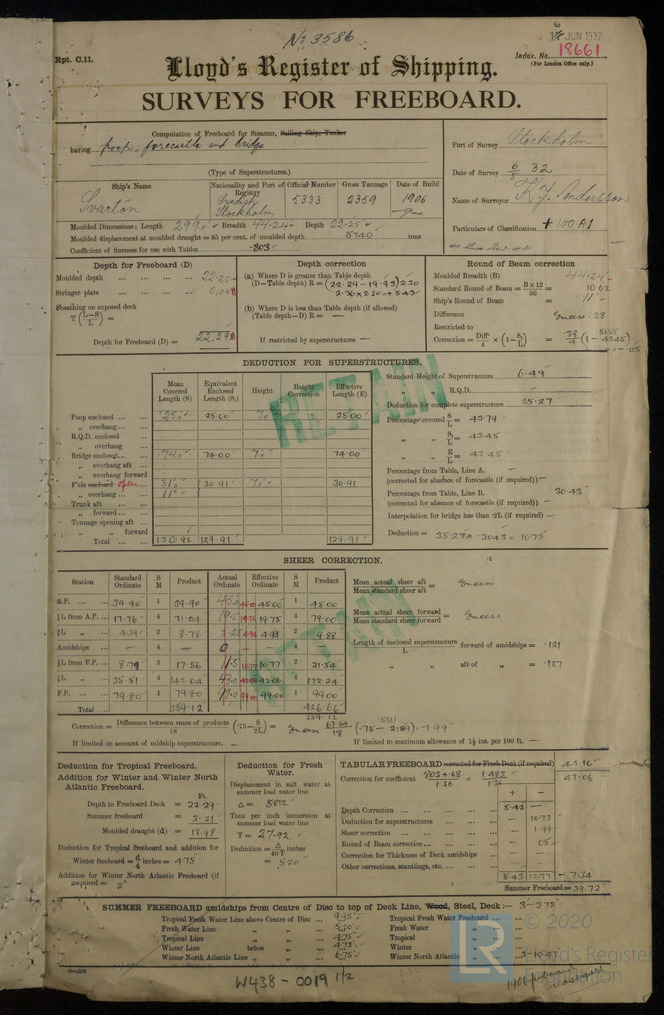 No 3586
6 JUN 1932
Rpt. C.11.
Index. No. 18661
(For London Office only.)
Lloyd's Register of Shipping.
SURVEYS FOR FREEBOARD.
Computation of Freeboard for Steamer, Sailing Ship, Tanker
having poop, forecastle and bridge
(Type of Superstructures.)
Port of Survey Stockholm
Date of Survey 6/5 32
Name of Surveyor K. J. Andersson
Particulars of Classification + 100 A1
Ship's Name Nationality and Port of Registry Official Number Gross Tonnage Date of Build
Svartön Swedish Stockholm 5333 2359 1906
Moulded Dimensions: Length 299.0 Breadth 44.24 Depth 22.25
Moulded displacement at moulded draught = 85 per cent. of moulded depth 5740 tons
Coefficient of fineness for use with Tables .803
Depth for Freeboard (D)
Moulded depth 22.25
Stringer plate 0.04
Sheathing on exposed deck
T (L-S / L) =
Depth for Freeboard (D) = 22.29
Depth correction
(a) Where D is greater than Table depth
(D—Table depth) R = (22.29 - 19.93) 2.30
2.36 x 2.30 = + 5.43
(b) Where D is less than Table depth (if allowed)
(Table depth—D) R = —
If restricted by superstructures —
Round of Beam correction
Moulded Breadth (B) 44.24
Standard Round of Beam = B × 12 / 50 = 10.62
Ship's Round of Beam = 11"
Difference Excess .38
Restricted to
Correction = Diff / 4 × (1 - S₁ / L) = .38 / 4 (1 - .4345) = - .05
DEDUCTION FOR SUPERSTRUCTURES.
Mean Covered Length (S) Equivalent Enclosed Length (S₁) Height Height Correction Effective Length (E)
Poop enclosed 25.0 25.00 7.0 25.00
„ overhang
R.Q.D. enclosed
„ overhang
Bridge enclosed 74.0 74.00 7.0 74.00
„ overhang aft
„ overhang forward
F'cle enclosed open 31.0 30.91 7.0 30.91
„ overhang
Trunk aft
„ forward
Tonnage opening aft
„ „ forward
Total 130.92 129.91 129.91
Standard Height of Superstructure 6.49
„ „ R.Q.D. —
Deduction for complete superstructure 35.27
Percentage covered S / L = 43.79
„ „ S₁ / L = 43.45
„ „ E / L = 43.45
Percentage from Table, Line A. —
(corrected for absence of forecastle (if required))
Percentage from Table, Line B. 30.43
(corrected for absence of forecastle (if required)) —
Interpolation for bridge less than .2L (if required) —
Deduction = 35.27 x .3043 = 10.73
RETAIN
SHEER CORRECTION.
Station Standard Ordinate S M Product Actual Ordinate Effective Ordinate S M Product
A.P. 39.90 1 39.90 45.0 45.00 1 45.00
⅙L from A.P. 17.76 4 71.04 19.75 4 79.00
⅓L „ 4.39 2 8.78 4.94 2 9.88
Amidships — 4 — 0 4
⅓L from F.P. 8.78 2 17.56 11.5 10.77 2 21.54
⅙L „ 35.51 4 142.04 43.0 4 172.24
F.P. 79.80 1 79.80 99.0 99.00 1 99.00
Total 359.12 426.66
359.12
Mean actual sheer aft / Mean standard sheer aft = Excess
Mean actual sheer forward / Mean standard sheer forward = Excess
Length of enclosed superstructure / L forward of amidships = .121
„ „ aft of „ = .127
RETAIN
Correction = Difference between sums of products / 18 (.75 - S / 2L) = Excess 67.54 / 18 (.75 - .2189) - 1.99
If limited on account of midship superstructure. —
If limited to maximum allowance of 1½ ins. per 100 ft. —
Deduction for Tropical Freeboard.
Addition for Winter and Winter North Atlantic Freeboard.
Ft.
Depth to Freeboard Deck = 22.29
Summer freeboard = 3.31
Moulded draught (d) = 18.98
Deduction for Tropical freeboard and addition for
Winter freeboard = d / 4 inches = 4.75
Addition for Winter North Atlantic Freeboard (if required) = 2"
Deduction for Fresh Water.
Displacement in salt water at summer load water line
Δ = 5812
Tons per inch immersion at summer load water line
T = 27.92
Deduction = Δ / 40T inches
= 5.20
TABULAR FREEBOARD corrected for Flush Deck (if required) 43.16
Correction for coefficient .803 + .68 / 1.36 = 1.483 / 1.36 47.06
+ —
Depth Correction 5.43 —
Deduction for superstructures — 10.73
Sheer correction — 1.99
Round of Beam correction — .05
Correction for Thickness of Deck amidships — —
Other corrections, scantlings, etc. — —
5.43 12.77 - 7.34
Summer Freeboard = 39.72
SUMMER FREEBOARD amidships from Centre of Disc to top of Deck Line, Wood, Steel, Deck:— 3-3.72
Tropical Fresh Water Line above Centre of Disc 9.95
Fresh Water Line „ „ 5.20
Tropical Line „ „ 4.75
Winter Line below „ 4.75
Winter North Atlantic Line „ „ 6.75
Tropical Fresh Water Freeboard
Fresh Water „
Tropical „
Winter „
Winter North Atlantic „ 3-10.47
W438-0019 1/2
LR
© 2020
Lloyd's Register
Foundation